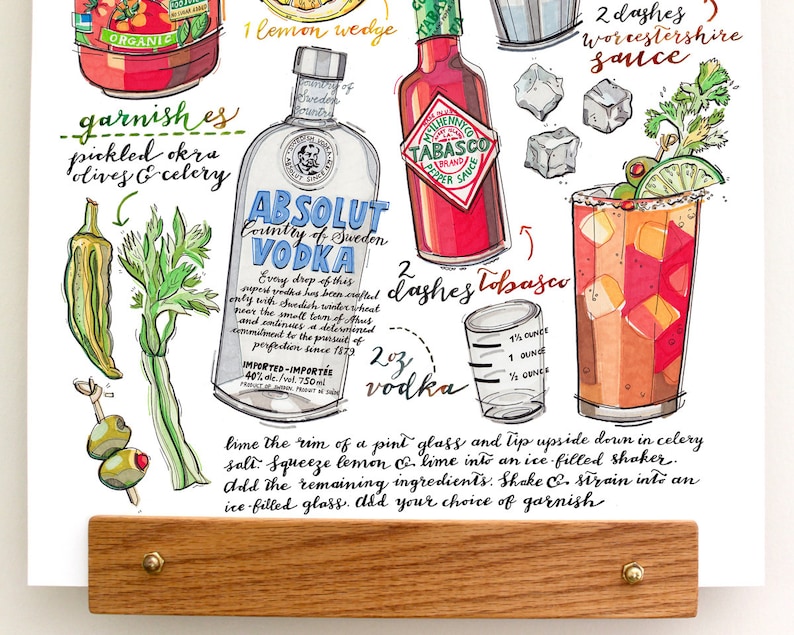 NO SUGAR ADDED
ORGANIC
1 lemon wedge
TABASCO
2 dashes
worcestershire
sauce
garnishes
pickled okra
olives & celery
Country of
Sweden
Country
SWEDISH VODKA
ABSOLUT SINCE
ABSOLUT
Country of Sweden
VODKA
Every drop of this
superb vodka has been crafted
only with Swedish winter wheat
near the small town of Ahus
and continues a determined
commitment to the pursuit of
perfection since 1879
IMPORTED-IMPORTÉE
40% alc./vol. 750ml
PRODUCT OF SWEDEN. PRODUIT DE SUÈDE
McILHENNY CO
TABASCO
BRAND
PEPPER SAUCE
2
dashes Tobasco
2oz
vodka
1½ OUNCE
1 OUNCE
½ OUNCE
lime the rim of a pint glass and tip upside down in celery
salt. Squeeze lemon & lime into an ice-filled shaker.
Add the remaining ingredients. Shake & strain into an
ice-filled glass. Add your choice of garnish